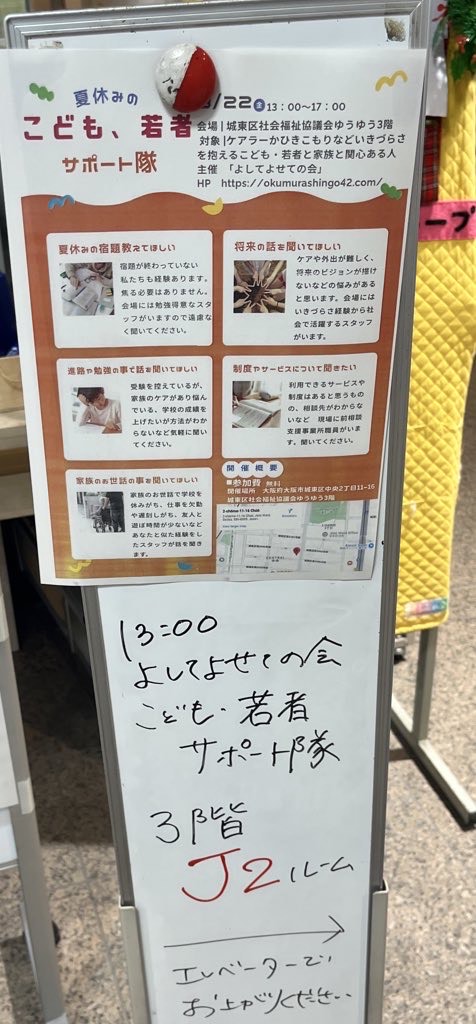 夏休みの
こども、若者
サポート隊
/22金13：00〜17：00
会場|城東区社会福祉協議会ゆうゆう3階
対象|ケアラーかひきこもりなどいきづらさ
を抱えるこども・若者と家族と関心ある人
主催 「よしてよせての会」
HP https://okumurashingo42.com/
夏休みの宿題教えてほしい
宿題が終わっていない
私たちも経験あります。
焦る必要はありません。
会場には勉強得意なスタ
ッフがいますので遠慮な
く聞いてください。
将来の話を聞いてほしい
ケアや外出が難しく、
将来のビジョンが描け
ないなどの悩みがある
と思います。会場には
いきづらさ経験から社
会で活躍するスタッフ
がいます。
進路や勉強の事で話を聞いてほしい
受験を控えているが、
家族のケアがあり悩ん
でいる、学校の成績を
上げたいが方法がわか
らないなど気軽に聞い
てください。
制度やサービスについて聞きたい
利用できるサービスや
制度はあると思うもの
の、相談先がわからな
いなど 現場に前相談
支援事業所職員がいま
す。聞いてください。
家族のお世話の事を聞いてほしい
家族のお世話で学校を
休みがち、仕事を欠勤
や遅刻しがち、友人と
遊ぶ時間が少ないなど
あなたと似た経験をし
たスタッフが話を聞き
ます。
開催概要
■参加費 無料
開催場所 大阪府大阪市城東区中央2丁目11-16
城東区社会福祉協議会ゆうゆう3階
ープ
13:00
よしてよせての会
こども・若者
サポート隊
3階
J2ルーム
→
エレベーターで
お上がりください